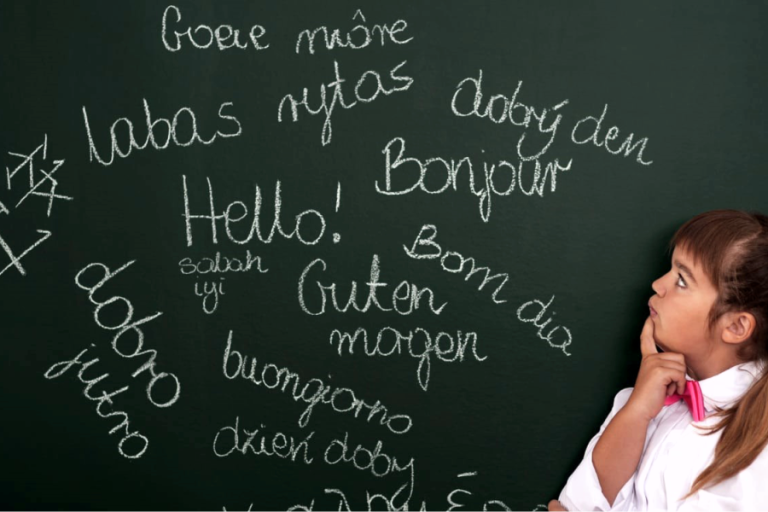 Goeie môre
labas rytas
dobrý den
Bonjour
Hello!
sabah
iyi
Bom dia
Guten
morgen
dobro
jutro
buongiorno
dzień doby